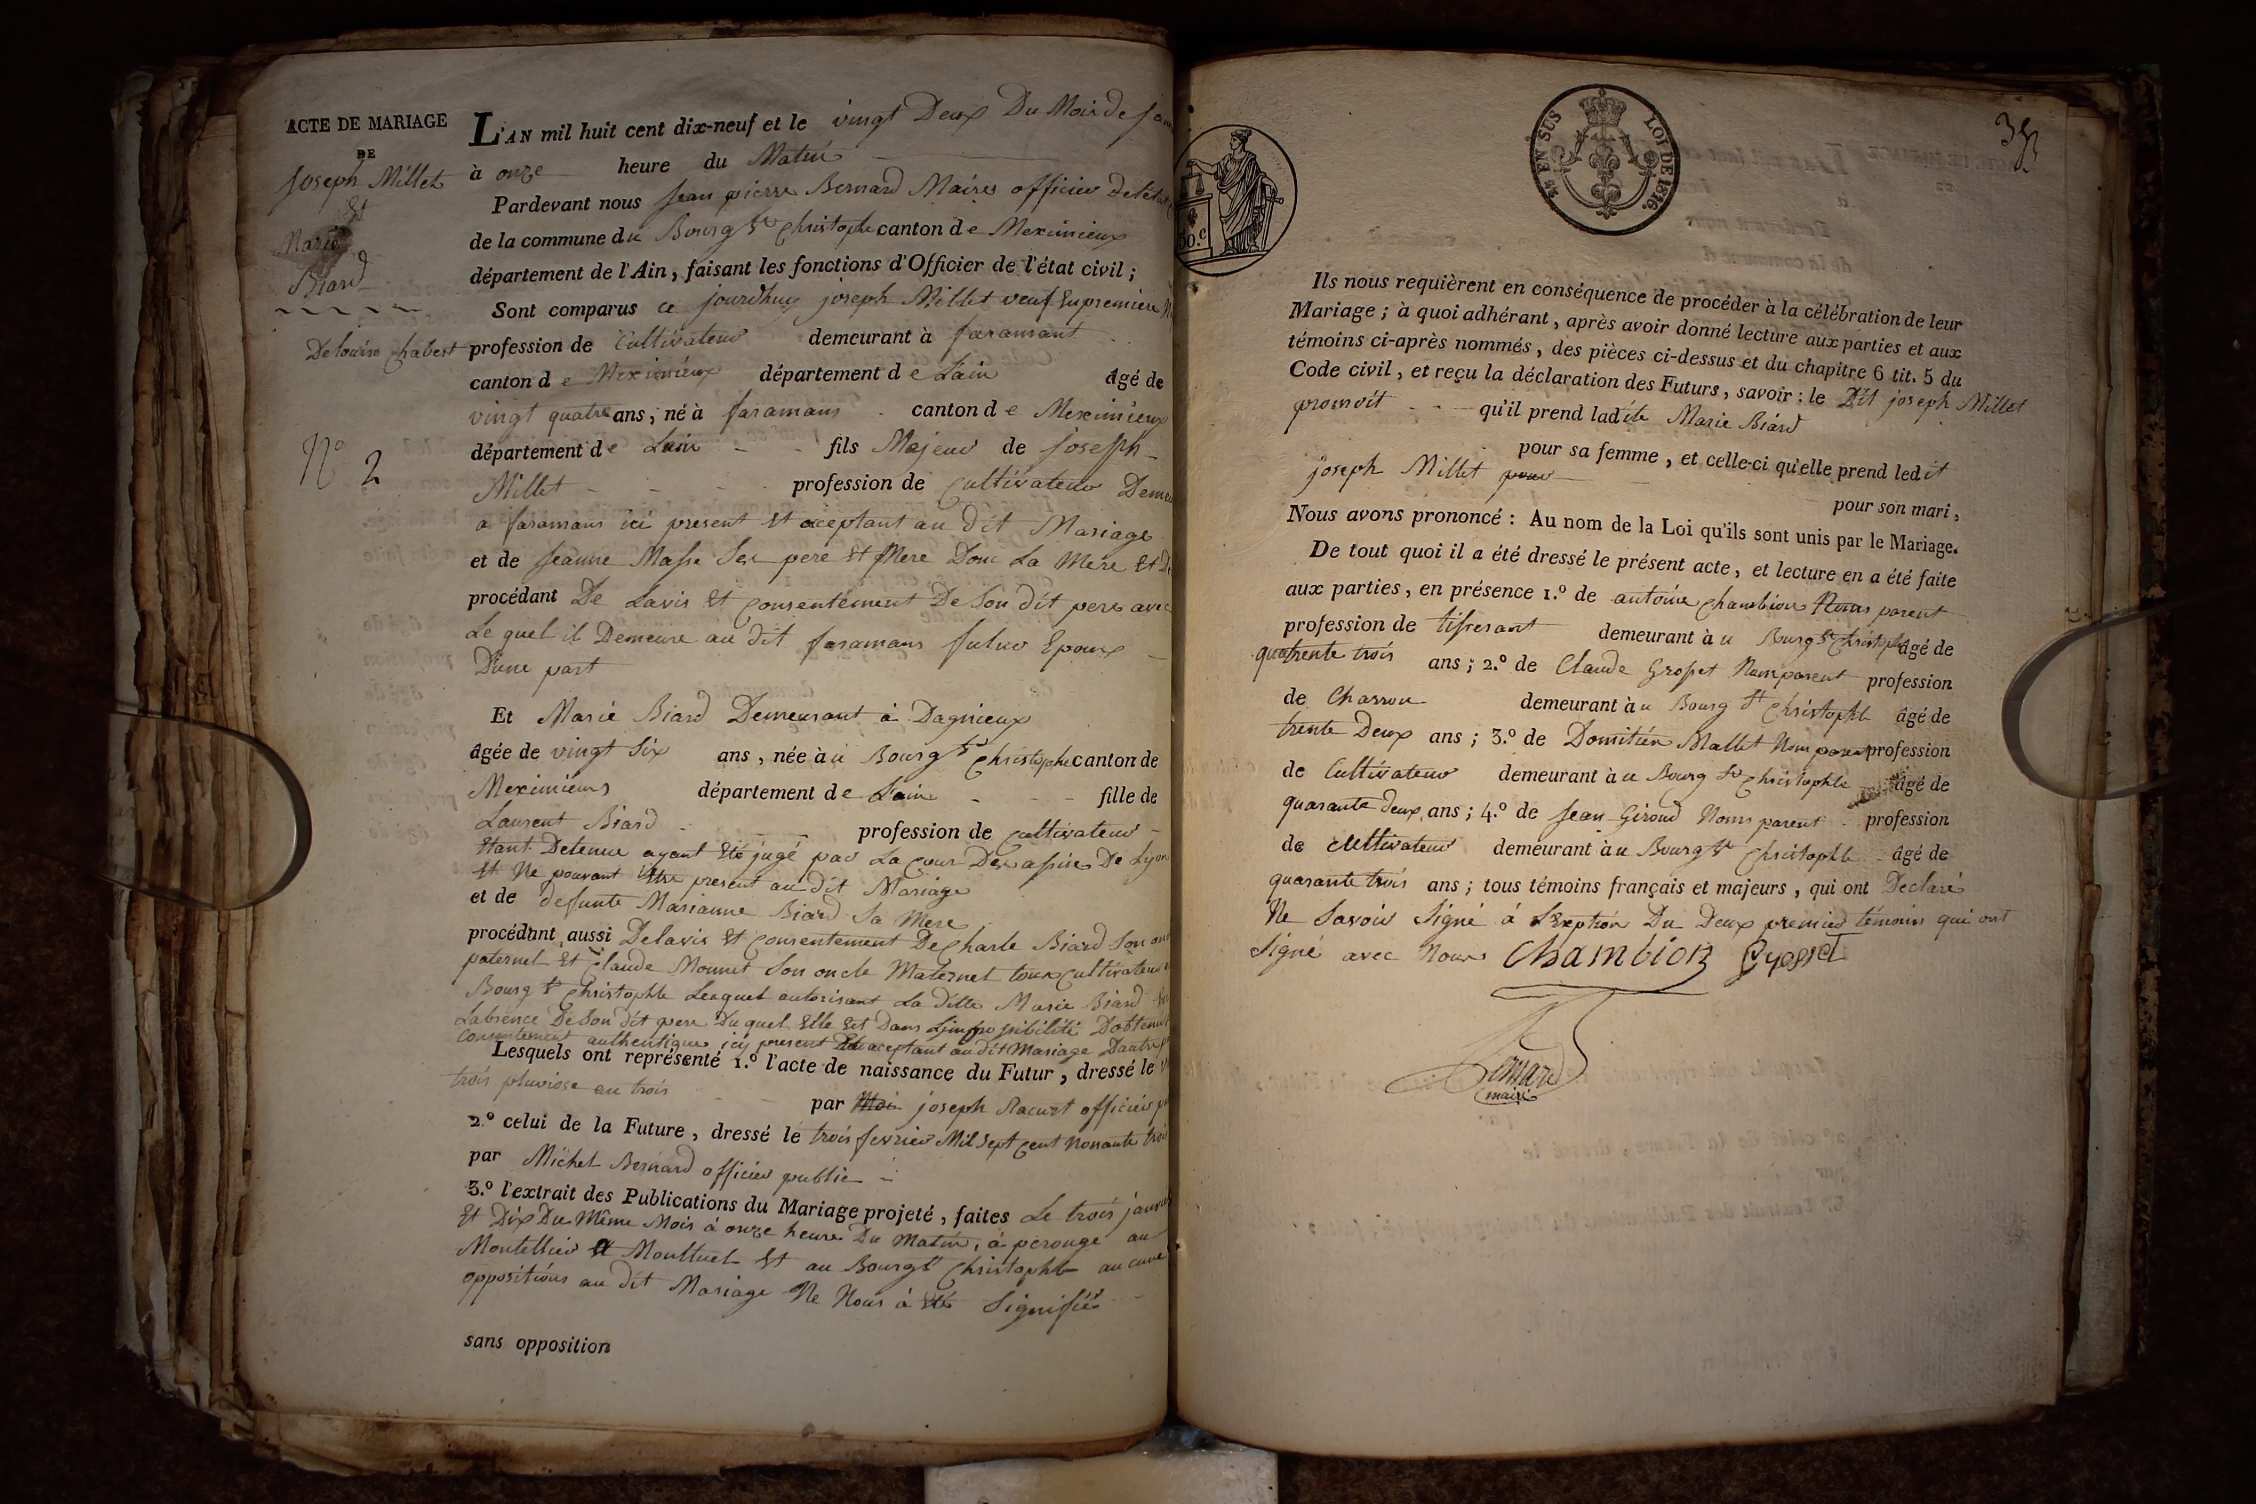 ACTE DE MARIAGE
DE
Joseph Millet
Et
Marie
Biard
De louise Chabert
N° 2
L'AN mil huit cent dix-neuf et le vingt Deux Du Mois de
à onze heure du Matin
Pardevant nous Jean pierre Bernard Maire officier De l'état
de la commune du Bourg St Christophe canton de Meximieux
département de l'Ain, faisant les fonctions d'Officier de l'état civil ;
Sont comparus ce jourdhuy joseph Millet veuf En premiere
profession de Cultivateur demeurant à faramant
canton de Meximieux département de Lain âgé de
vingt quatre ans, né à faramans canton de Meximieux
département de Lain fils Majeur de joseph
Millet profession de Cultivateur
a faramans ici present Et aceptant au Dit Mariage
et de Jeanne Masse Ses pere Et Mere Donc La Mere Et
procédant De Lavis Et Consentement De Son dit pere avec
Le quel il Demeure au dit faramans futur Epoux
D'une part
Et Marie Biard Demeurant à Dagnieux
âgée de vingt Six ans, née àu Bourg St Christophe canton de
Meximieux département de Lain fille de
Laurent Biard profession de Cultivateur
Etant Detenu ayant Eté jugé par La Cour Des assises De Lyon
Et Ne pouvant Etre present au dit Mariage
et de defunte Marianne Biard Sa Mere
procédant aussi Delavis Et Consentement De Charle Biard Son
paternel Et Claude Monnet Son oncle Maternel tous Cultivateur
Bourg St Christophle Lesquel autorisant La ditte Marie Biard
Labsence De Son Dit pere Du quel Elle Est Dans Limpossibilité D'obtenir
Consentement authentique icy present Et aceptant au dit Mariage Dautre
Lesquels ont représenté 1.° l'acte de naissance du Futur, dressé le
trois pluviose an trois
par Moi joseph Racurt officier
2.° celui de la Future, dressé le trois fevrier Mil Sept Cent Nonante trois
par Michel Bernard officier public
3.° l'extrait des Publications du Mariage projeté, faites Le trois
Et Dix Du Même Mois à onze heure Du Matin, à perouge au
Montellier Montluel Et au Bourg St Christophle aucune
oppositions au dit Mariage Ne Nous à Eté Signifié
sans opposition
50.c
EN SUS LOI DE 1816.
Ils nous requièrent en conséquence de procéder à la célébration de leur
Mariage ; à quoi adhérant, après avoir donné lecture aux parties et aux
témoins ci-après nommés, des pièces ci-dessus et du chapitre 6 tit. 5 du
Code civil, et reçu la déclaration des Futurs, savoir : le Dit joseph Millet
qu'il prend ladite Marie Biard
pour sa femme, et celle-ci qu'elle prend ledit
joseph Millet pour
pour son mari,
Nous avons prononcé : Au nom de la Loi qu'ils sont unis par le Mariage.
De tout quoi il a été dressé le présent acte, et lecture en a été faite
aux parties, en présence 1.° de antoine Chambion Nom parent
profession de tisserant demeurant àu Bourg St Christophe âgé de
quatrente trois ans ; 2.° de Claude Grosset Nom parent profession
de Charron demeurant àu Bourg St Christophle âgé de
trente Deux ans ; 3.° de Domitien Mallet Nom parent profession
de Cultivateur demeurant àu Bourg St Christophle âgé de
quarante deux ans ; 4.° de Jean Giroud Nom parent profession
de Cultivateur demeurant àu Bourg St Christophle âgé de
quarante trois ans ; tous témoins français et majeurs, qui ont Declaré
Ne Savoir Signé à Lexeption Du Deux premier témoins qui ont
Signé avec Nous Chambion
Bernard
maire